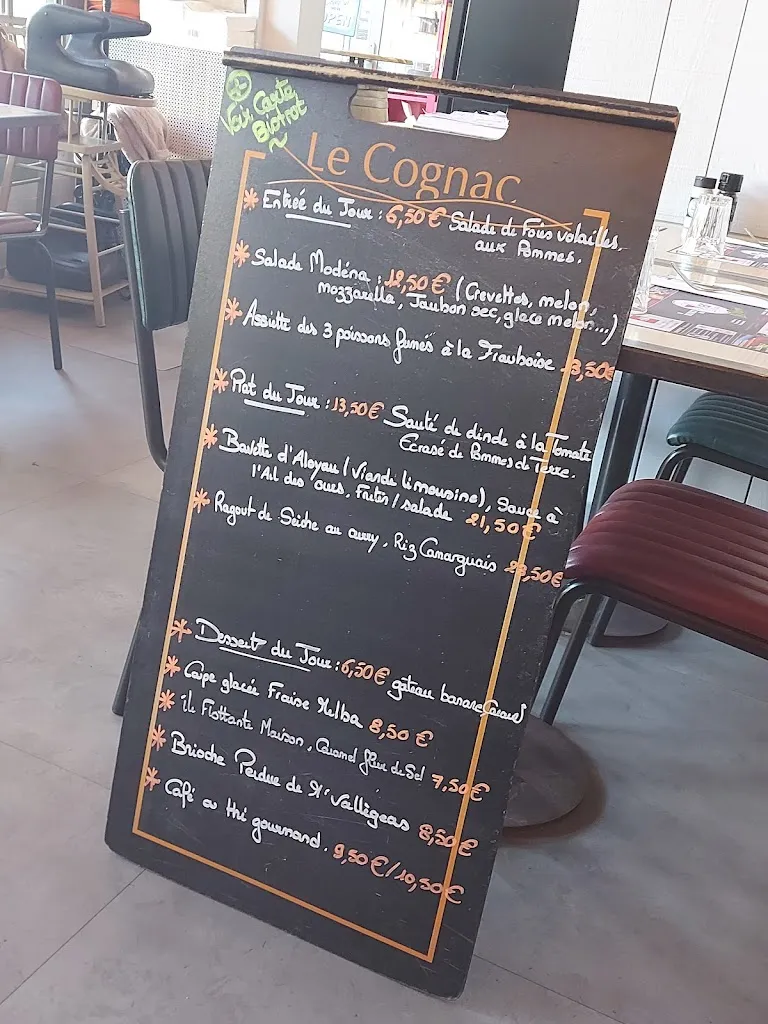 Carte
Bistrot
Le Cognac
Entrée du Jour : 6,50 € Salade de Foies volailles
aux Pommes.
Salade Modéna : 12,50 € (Crevettes, melon,
mozzarella, Jambon sec, glace melon...)
Assiette des 3 poissons fumés à la Framboise 13,50€
Plat du Jour : 13,50 € Sauté de dinde à la Tomate
Ecrasé de Pommes de Terre.
Bavette d'Aloyau (Viande limousine), Sauce à
l'Ail des ours, Frites / salade 21,50 €
Ragout de Seiche au curry, Riz Camarguais 23,50€
Dessert du Jour : 6,50 € gâteau banane
Coupe glacée Fraise Melba 8,50 €
île Flottante Maison, Caramel fleur de Sel 7,50€
Brioche Perdue de Mr Vallègeas 8,50€
Café ou thé gourmand. 9,50 € / 10,50€